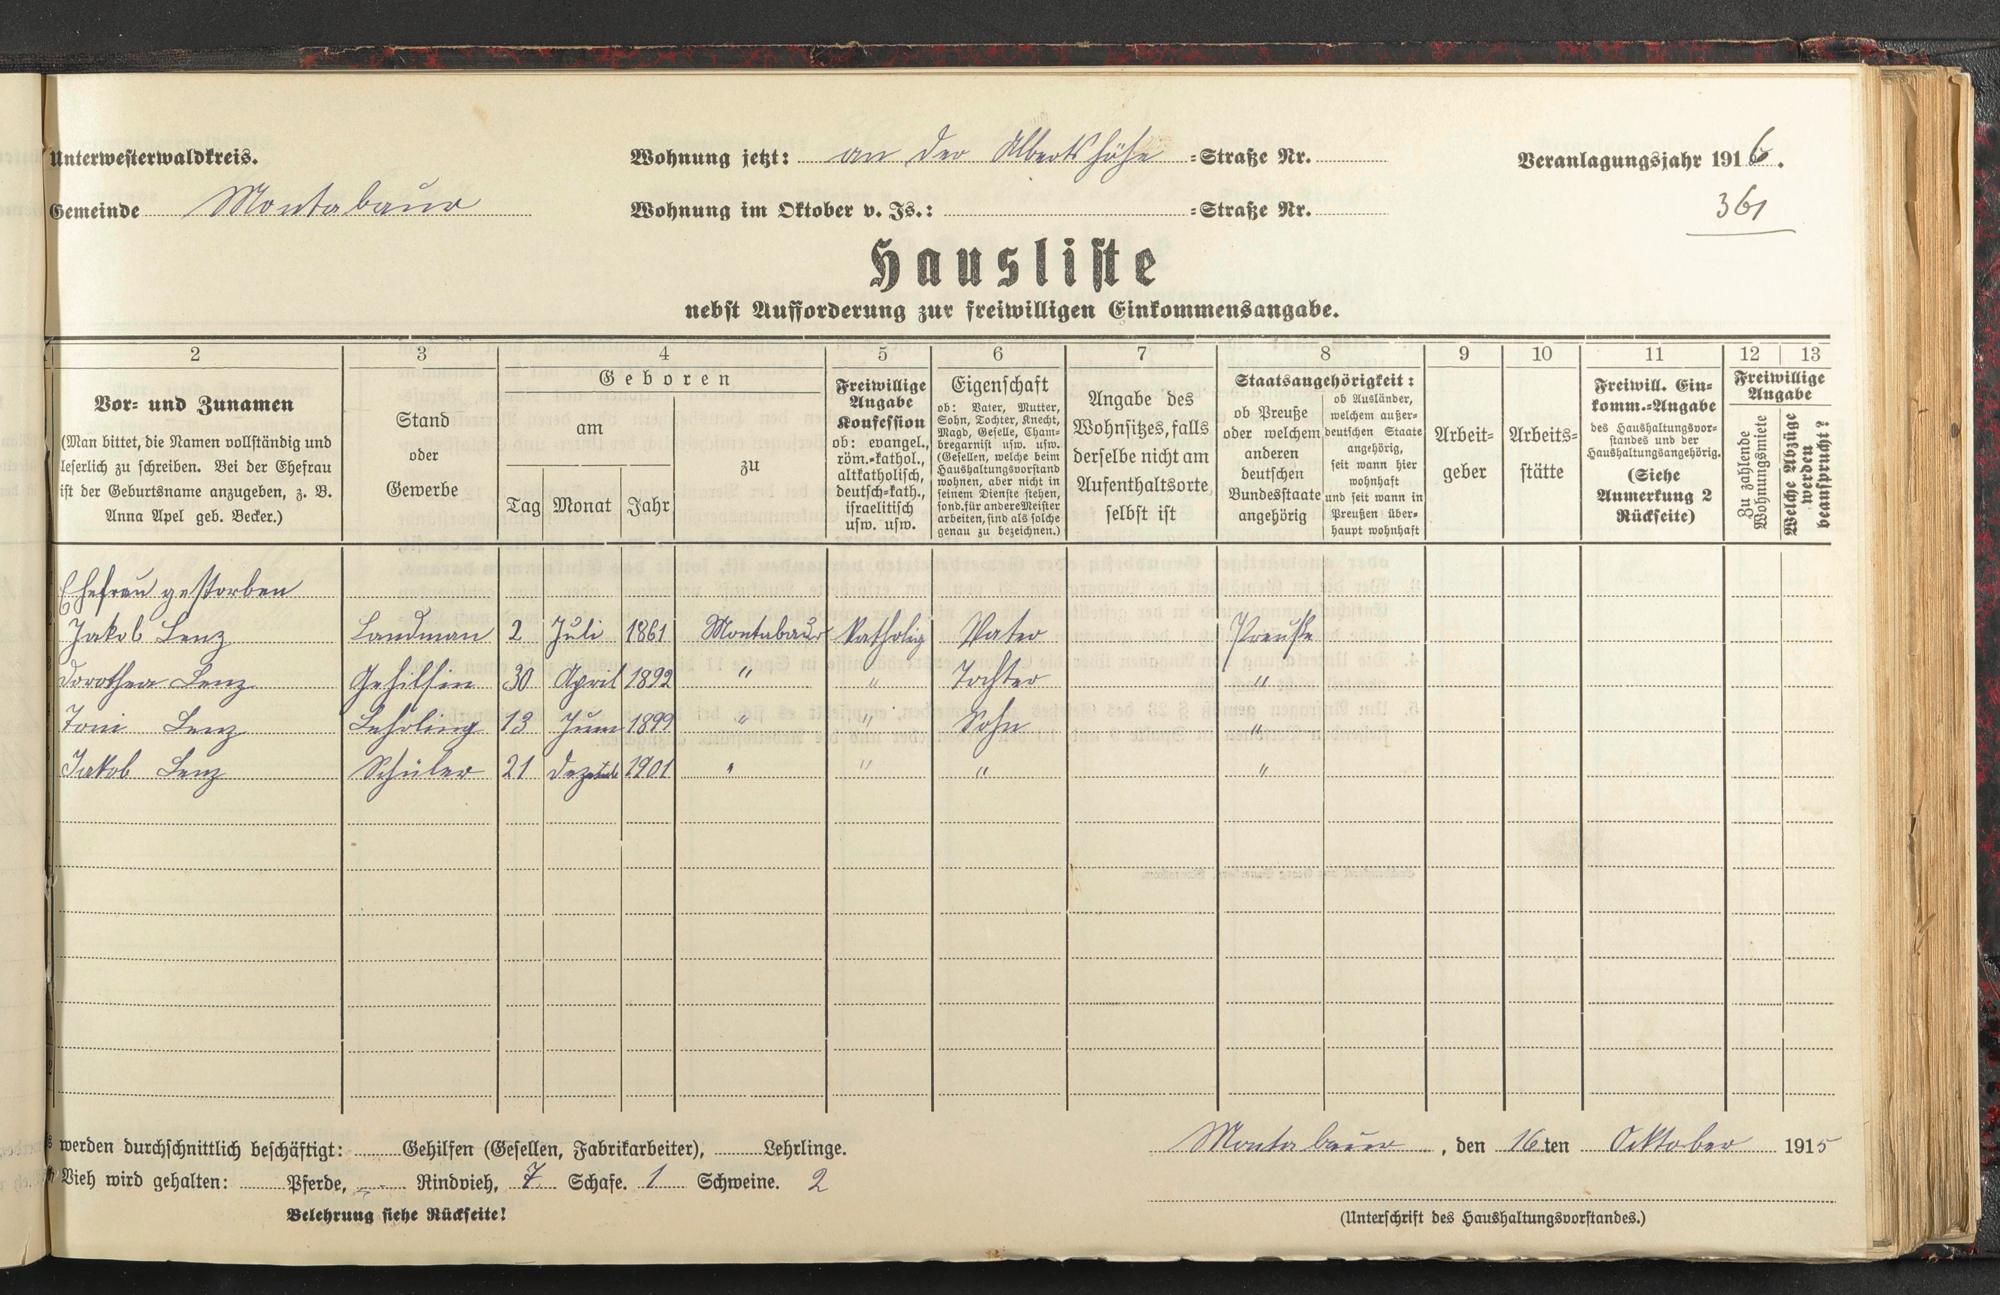 Unterwesterwaldkreis.
Wohnung jetzt: an der Albertshöhe =Straße Nr.
Veranlagungsjahr 1916.
Gemeinde Montabaur
Wohnung im Oktober v. Js.: =Straße Nr.
361
Hausliste
nebst Aufforderung zur freiwilligen Einkommensangabe.
2 3 4 5 6 7 8 9 10 11 12 13
Vor- und Zunamen
(Man bittet, die Namen vollständig und
leserlich zu schreiben. Bei der Ehefrau
ist der Geburtsname anzugeben, z. B.
Anna Apel geb. Becker.)
Stand
oder
Gewerbe
Geboren
am
Tag Monat Jahr
zu
Freiwillige
Angabe
Konfession
ob: evangel.,
röm.-kathol.,
altkatholisch,
deutsch-kath.,
israelitisch
usw. usw.
Eigenschaft
ob: Vater, Mutter,
Sohn, Tochter, Knecht,
Magd, Geselle, Cham-
bregarnist usw. usw.
(Gesellen, welche beim
Haushaltungsvorstand
wohnen, aber nicht in
seinem Dienste stehen,
sond. für andere Meister
arbeiten, sind als solche
genau zu bezeichnen.)
Angabe des
Wohnsitzes, falls
derselbe nicht am
Aufenthaltsorte
selbst ist
Staatsangehörigkeit:
ob Preuße
oder welchem
anderen
deutschen
Bundesstaate
angehörig
ob Ausländer,
welchem außer-
deutschen Staate
angehörig,
seit wann hier
wohnhaft
und seit wann in
Preußen über-
haupt wohnhaft
Arbeit-
geber
Arbeits-
stätte
Freiwill. Ein-
komm.-Angabe
des Haushaltungsvor-
standes und der
Haushaltungsangehörig.
(Siehe
Anmerkung 2
Rückseite)
Freiwillige
Angabe
Zu zahlende
Wohnungsmiete
Welche Abzüge
werden
beansprucht?
Ehefrau gestorben
Jakob Lenz Landman 2 Juli 1861 Montabaur Katholig Vater Preuße
Dorothea Lenz Gehilfin 30 April 1892 " " Tochter "
Toni Lenz Lehrling 13 Juni 1899 " " Sohn "
Jakob Lenz Schüler 21 Dezemb 1901 " " " "
werden durchschnittlich beschäftigt: Gehilfen (Gesellen, Fabrikarbeiter), Lehrlinge.
Montabaur, den 16ten Oktober 1915
Vieh wird gehalten: Pferde, - Rindvieh, 7 Schafe. 1 Schweine. 2
Belehrung siehe Rückseite!
(Unterschrift des Haushaltungsvorstandes.)